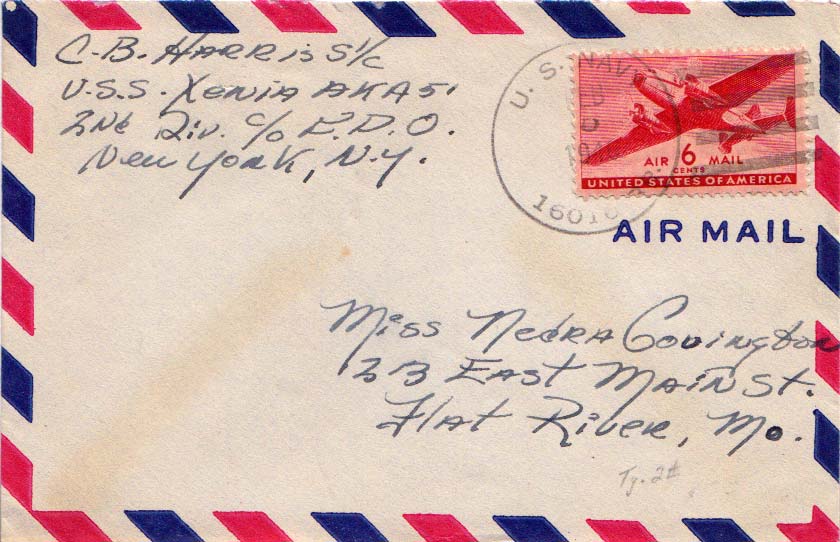 C-B. HARRis S1/c
U.S.S. Xenia AKA 51
2Nd Div. c/o F.P.O.
New York, N.Y.
U.S. NAVY
AIR 6 MAIL
CENTS
UNITED STATES OF AMERICA
AIR MAIL
Miss Nedra Covington
23 East Main St.
Flat River, Mo.